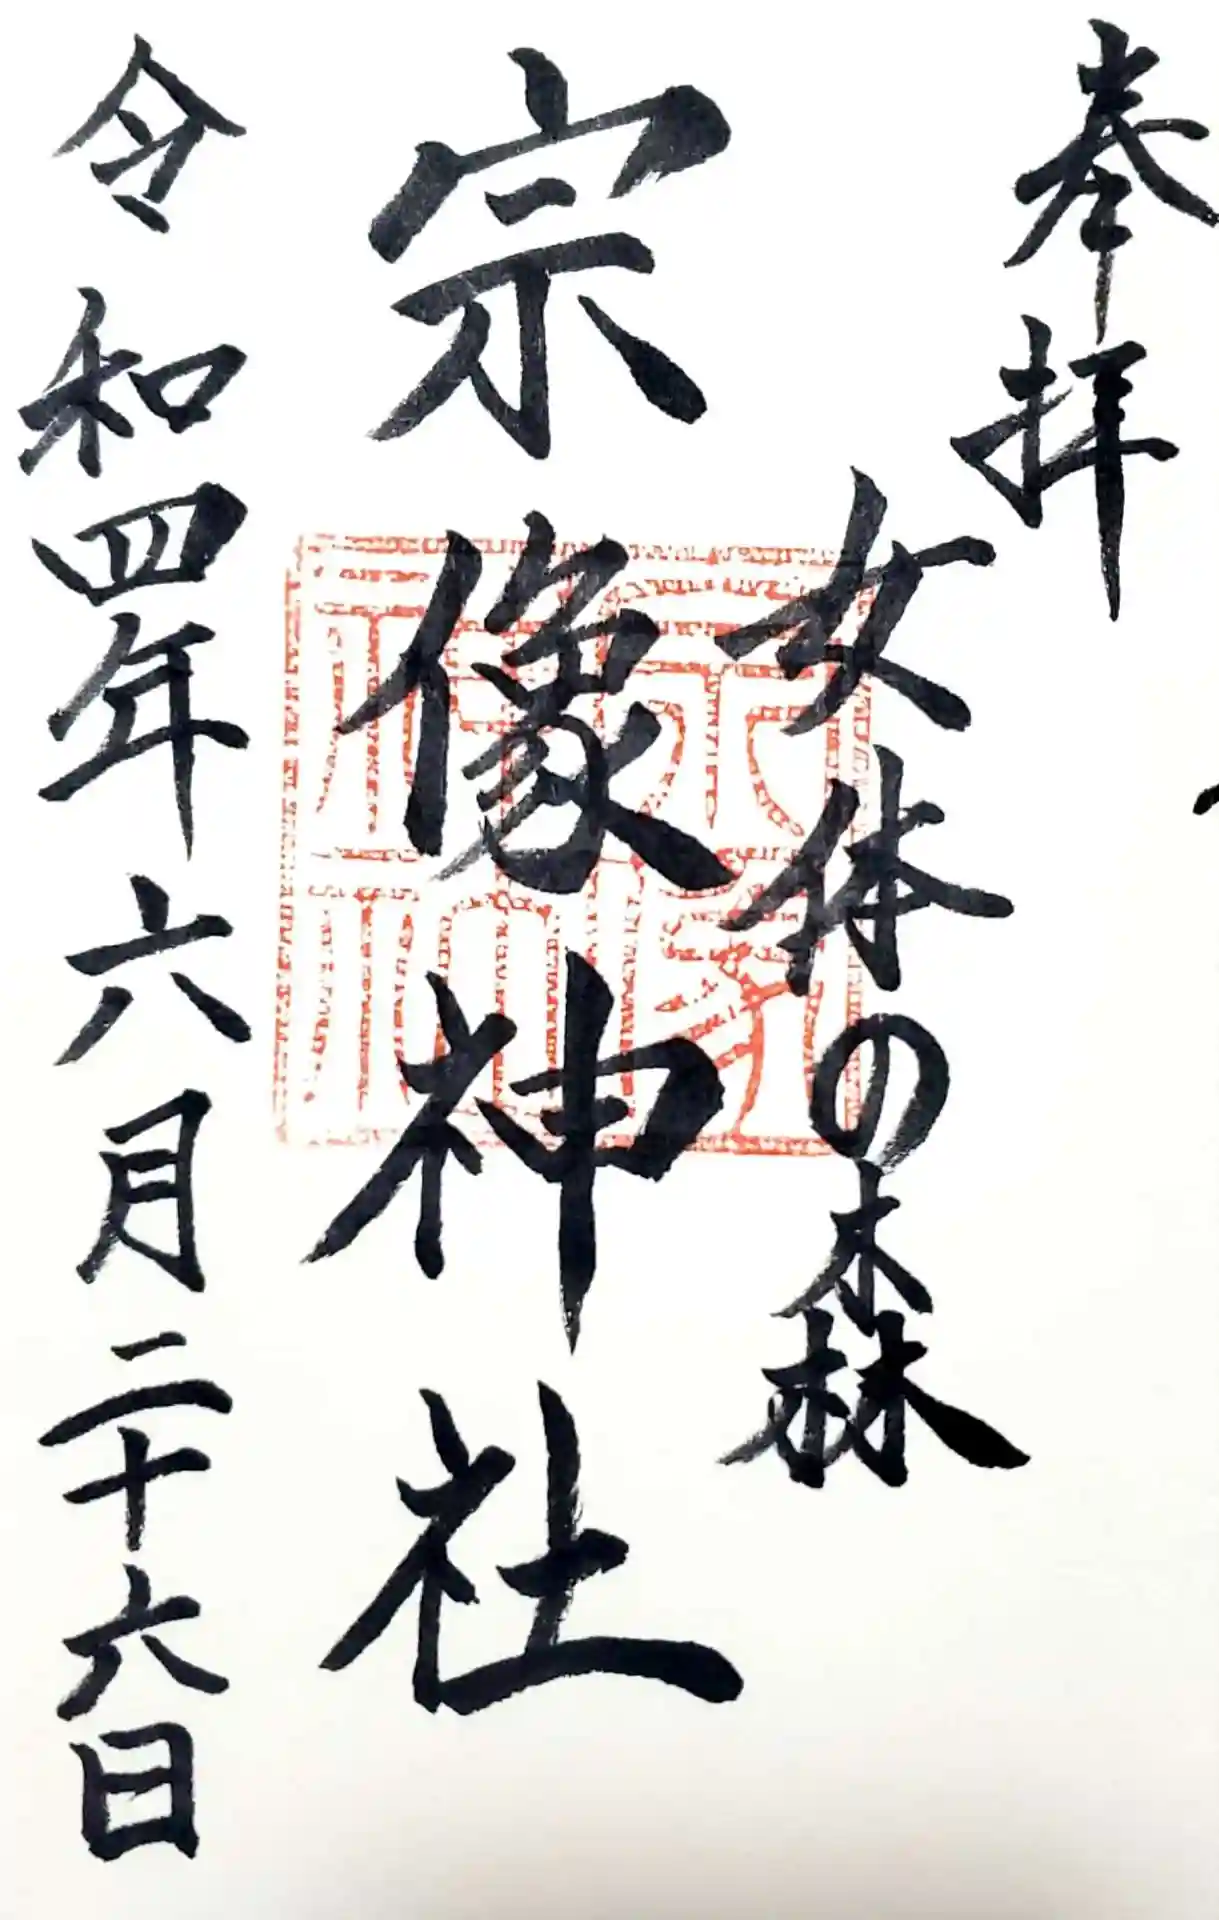 奉拝
女体の森
宗像神社
令和四年六月二十六日
宗像神社